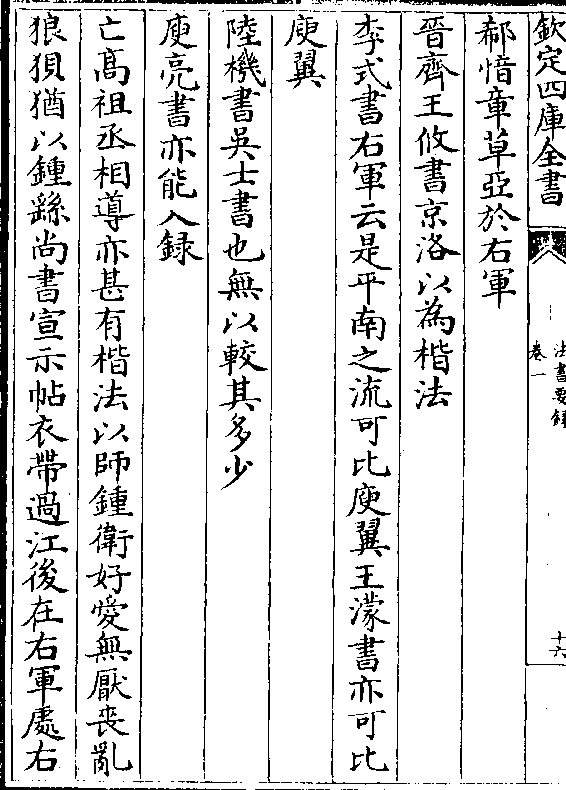 欽定四庫全書
法書要録
卷一
十六
郗愔章草亞於右軍
晉齊王攸書京洛以為楷法
李式書右軍云是平南之流可比庾翼王濛書亦可比
庾翼
陸機書吳士書也無以較其多少
庾亮書亦能入録
亡髙祖丞相導亦甚有楷法以師鍾衛好愛無厭喪亂
狼狽猶以鍾繇尚書宣示帖衣帶過江後在右軍處右